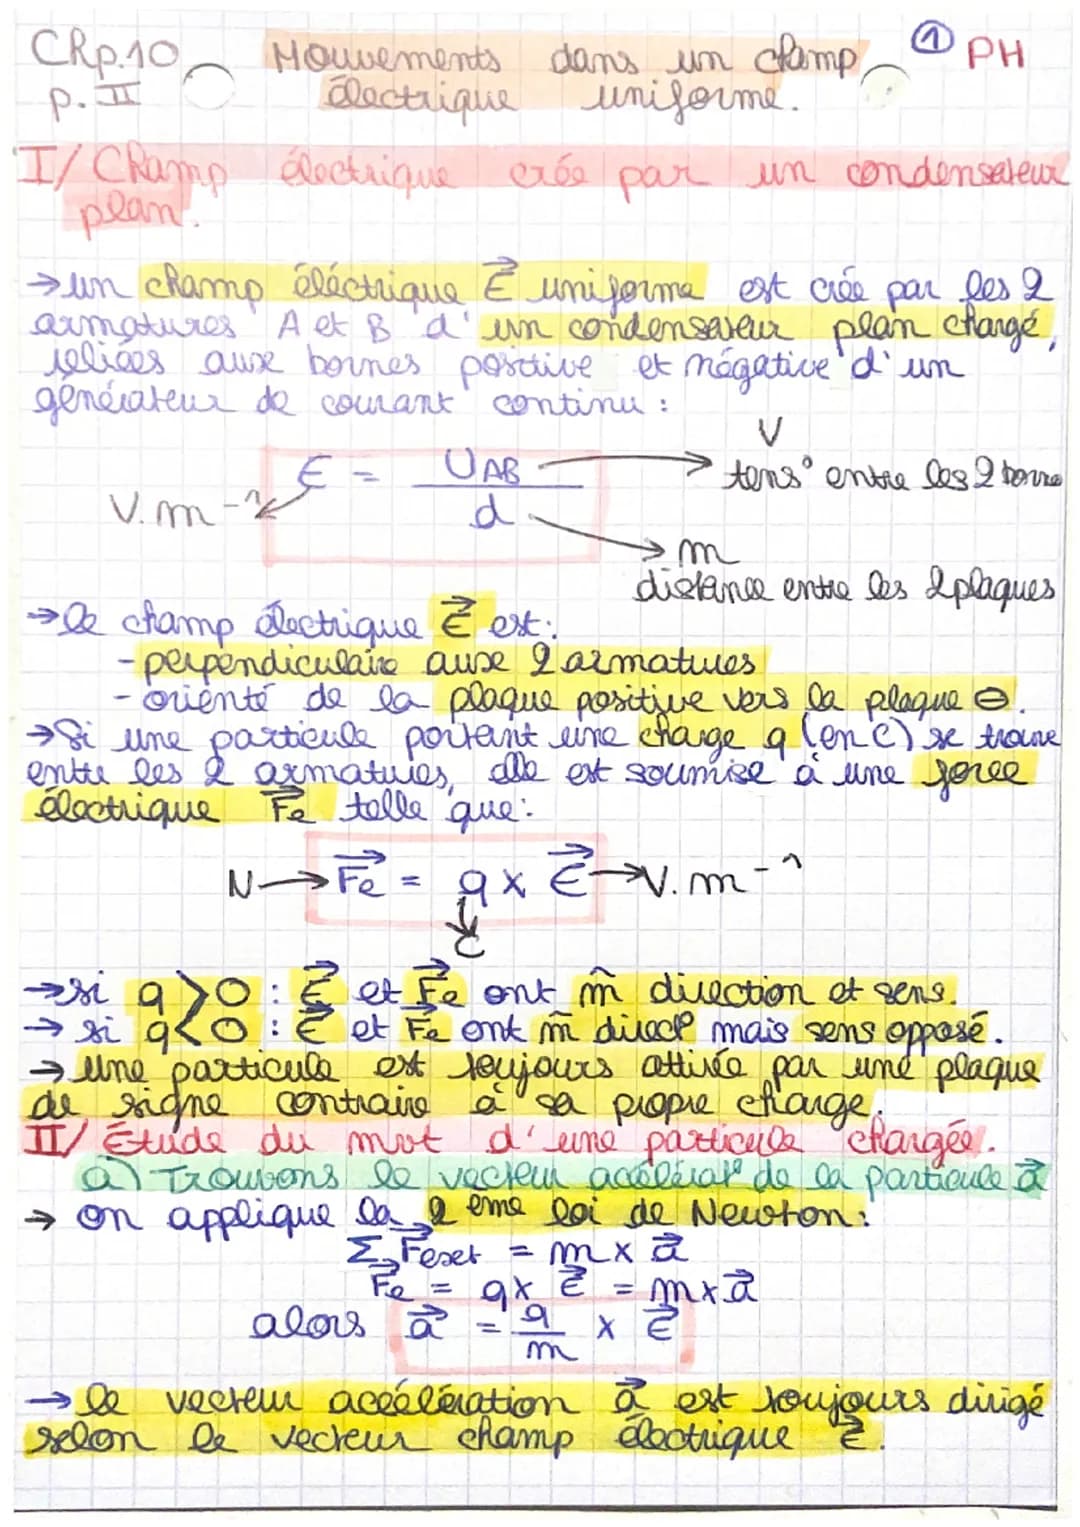 CRp.10 Mouvements dans un champ ① PH
p. II électrique uniforme.
I/ Champ électrique crée par un condensateur
plan.
→ un champ éléctrique E⃗ uniforme est crée par les 2
armatures A et B d'un condensateur plan chargé,
reliées aux bornes positive et négative d'un
générateur de courant continu :
V
E = U_AB / d → tens° entre les 2 borne
V.m⁻¹
→ m
distance entre les 2 plaques
→ le champ électrique E⃗ est :
- perpendiculaire aux 2 armatures
- orienté de la plaque positive vers la plaque ⊖.
→ Si une particule portant une charge q (en C) se trouve
entre les 2 armatures, elle est soumise à une force
électrique F⃗e telle que :
N → F⃗e = q x E⃗ → V.m⁻¹
C
→ si q > 0 : E⃗ et F⃗e ont m̂ direction et sens.
→ si q < 0 : E⃗ et F⃗e ont m̂ direc° mais sens opposé.
→ une particule est toujours attirée par une plaque
de signe contraire à sa propre charge.
II/ Étude du mvt d'une particule chargée.
a) Trouvons le vecteur accélérat° de la particule a⃗
→ on applique la 2ème loi de Newton :
Σ F⃗ext = m x a⃗
F⃗e = q x E⃗ = m x a⃗
alors a⃗ = q/m x E⃗
→ le vecteur accélération a⃗ est toujours dirigé
selon le vecteur champ électrique E⃗.